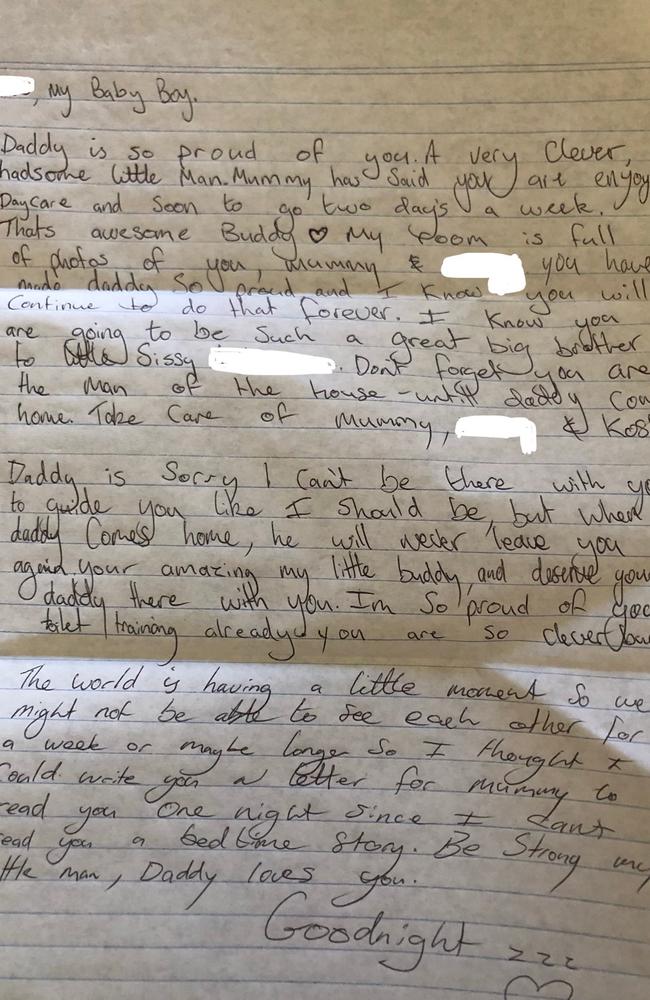 , My Baby Boy.
Daddy is so proud of you. A very Clever,
hadsome little Man. Mummy has Said you are enjoy
Daycare and Soon to go two day's a week.
Thats awesome Buddy ♡ My room is full
of photos of you, mummy & you have
made daddy So proud and I Know you will
Continue to do that forever. I Know you
are going to be Such a great big brother
to little Sissy . Don't forget you are
the man of the house - until daddy Com
home. Take Care of mummy, & Kos
Daddy is Sorry I Can't be there with yo
to guide you like I should be, but when
daddy Comes home, he will never leave you
again. your amazing my little buddy, and deserve your
daddy there with you. Im So proud of you
toilet training already you are so clever
The world is having a little moment So we
might not be able to see each other for
a week or maybe longer So I thought I
Could write you a letter for mummy to
read you One night since I can't
ead you a bedtime story. Be Strong my
ttle man, Daddy loves you.
Goodnight zzz